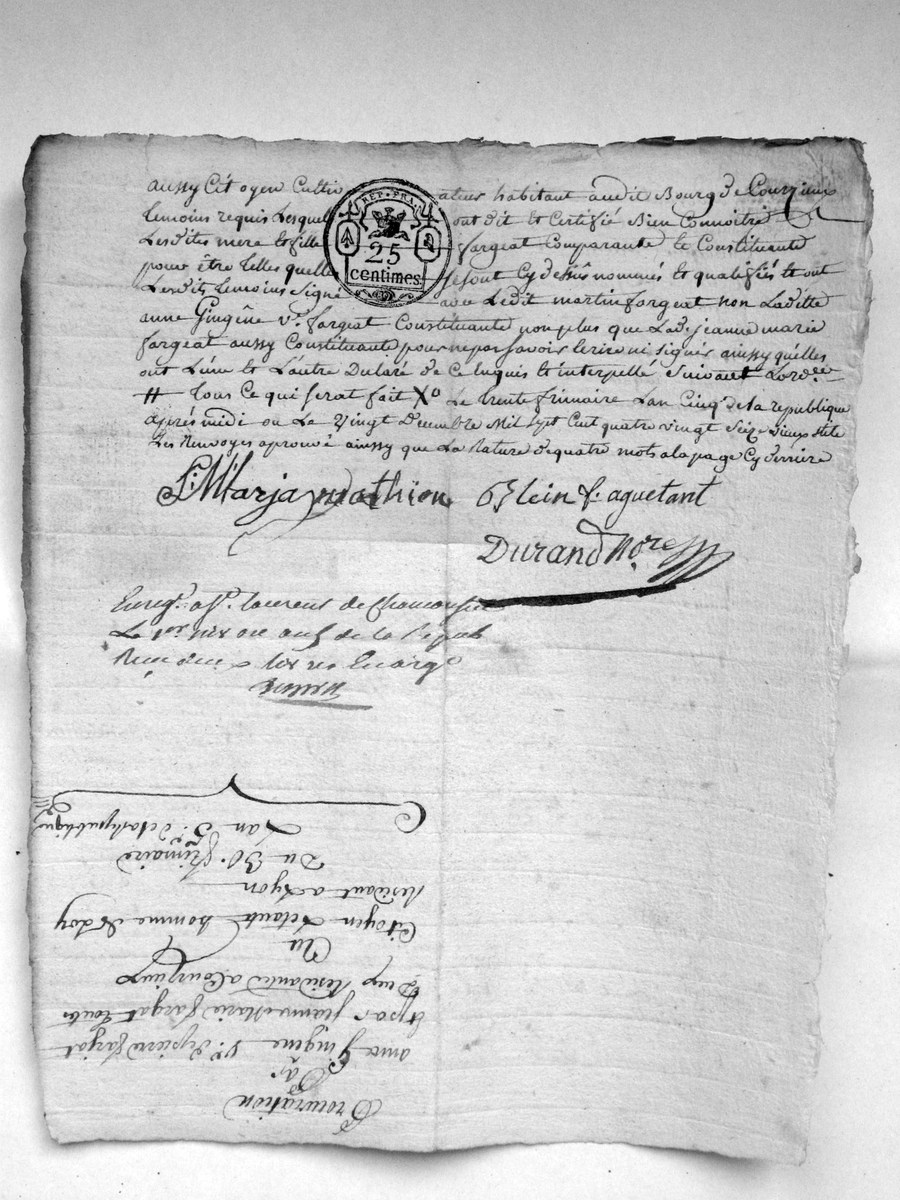 aussy Citoyen Cultivateur habitant audit Bourg de Courzieux
temoins requis Lesquels ont dit et Certifié Bien Connoitre
Lesdites mere et fille fargeat Comparante et Constituante
pour être telles quelles se sont Cy dessûs nommés et qualifiés et ont
Lesdits temoins Signé avec Ledit martin fargeat non Laditte
anne Gingêne Ve. fargeat Constituante non plus que Lade. jeanne marie
fargeat aussy Constituante pour ne pas savoir Ecrire ni signer ainssy quélles
ont L'une et L'autre Déclaré de Ce Enquis et interpellé Suivant Lord.ce
# tous Ce qui serat fait Xo Le trente frimaire Lan Cinq.e de la republique
après midi ou Le Vingt Decembre Mil Sept Cent quatre vingt Seize vieux stile
Les Renvoyes aprouvé ainssy que La Rature de quatre mots a la page Cy derriere
REP. FRA.
25
centimes
mathion Blein f. aguetant
Durand Nore
Enreg.
Le 1er nivose an 5 de la Répub
Reçu deux
Procuration
Par
anne Gingene Ve. de pierre fargeat
Et par Jeanne Marie fargeat toutes
Deux Residantes a Courzieux
Au
Citoyen homme de Loy
Residant a Lyon
Du 30. frimaire
Lan 5e. de la Republique